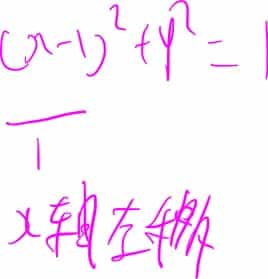 (x-1)²+y²=1
1
x轴左移